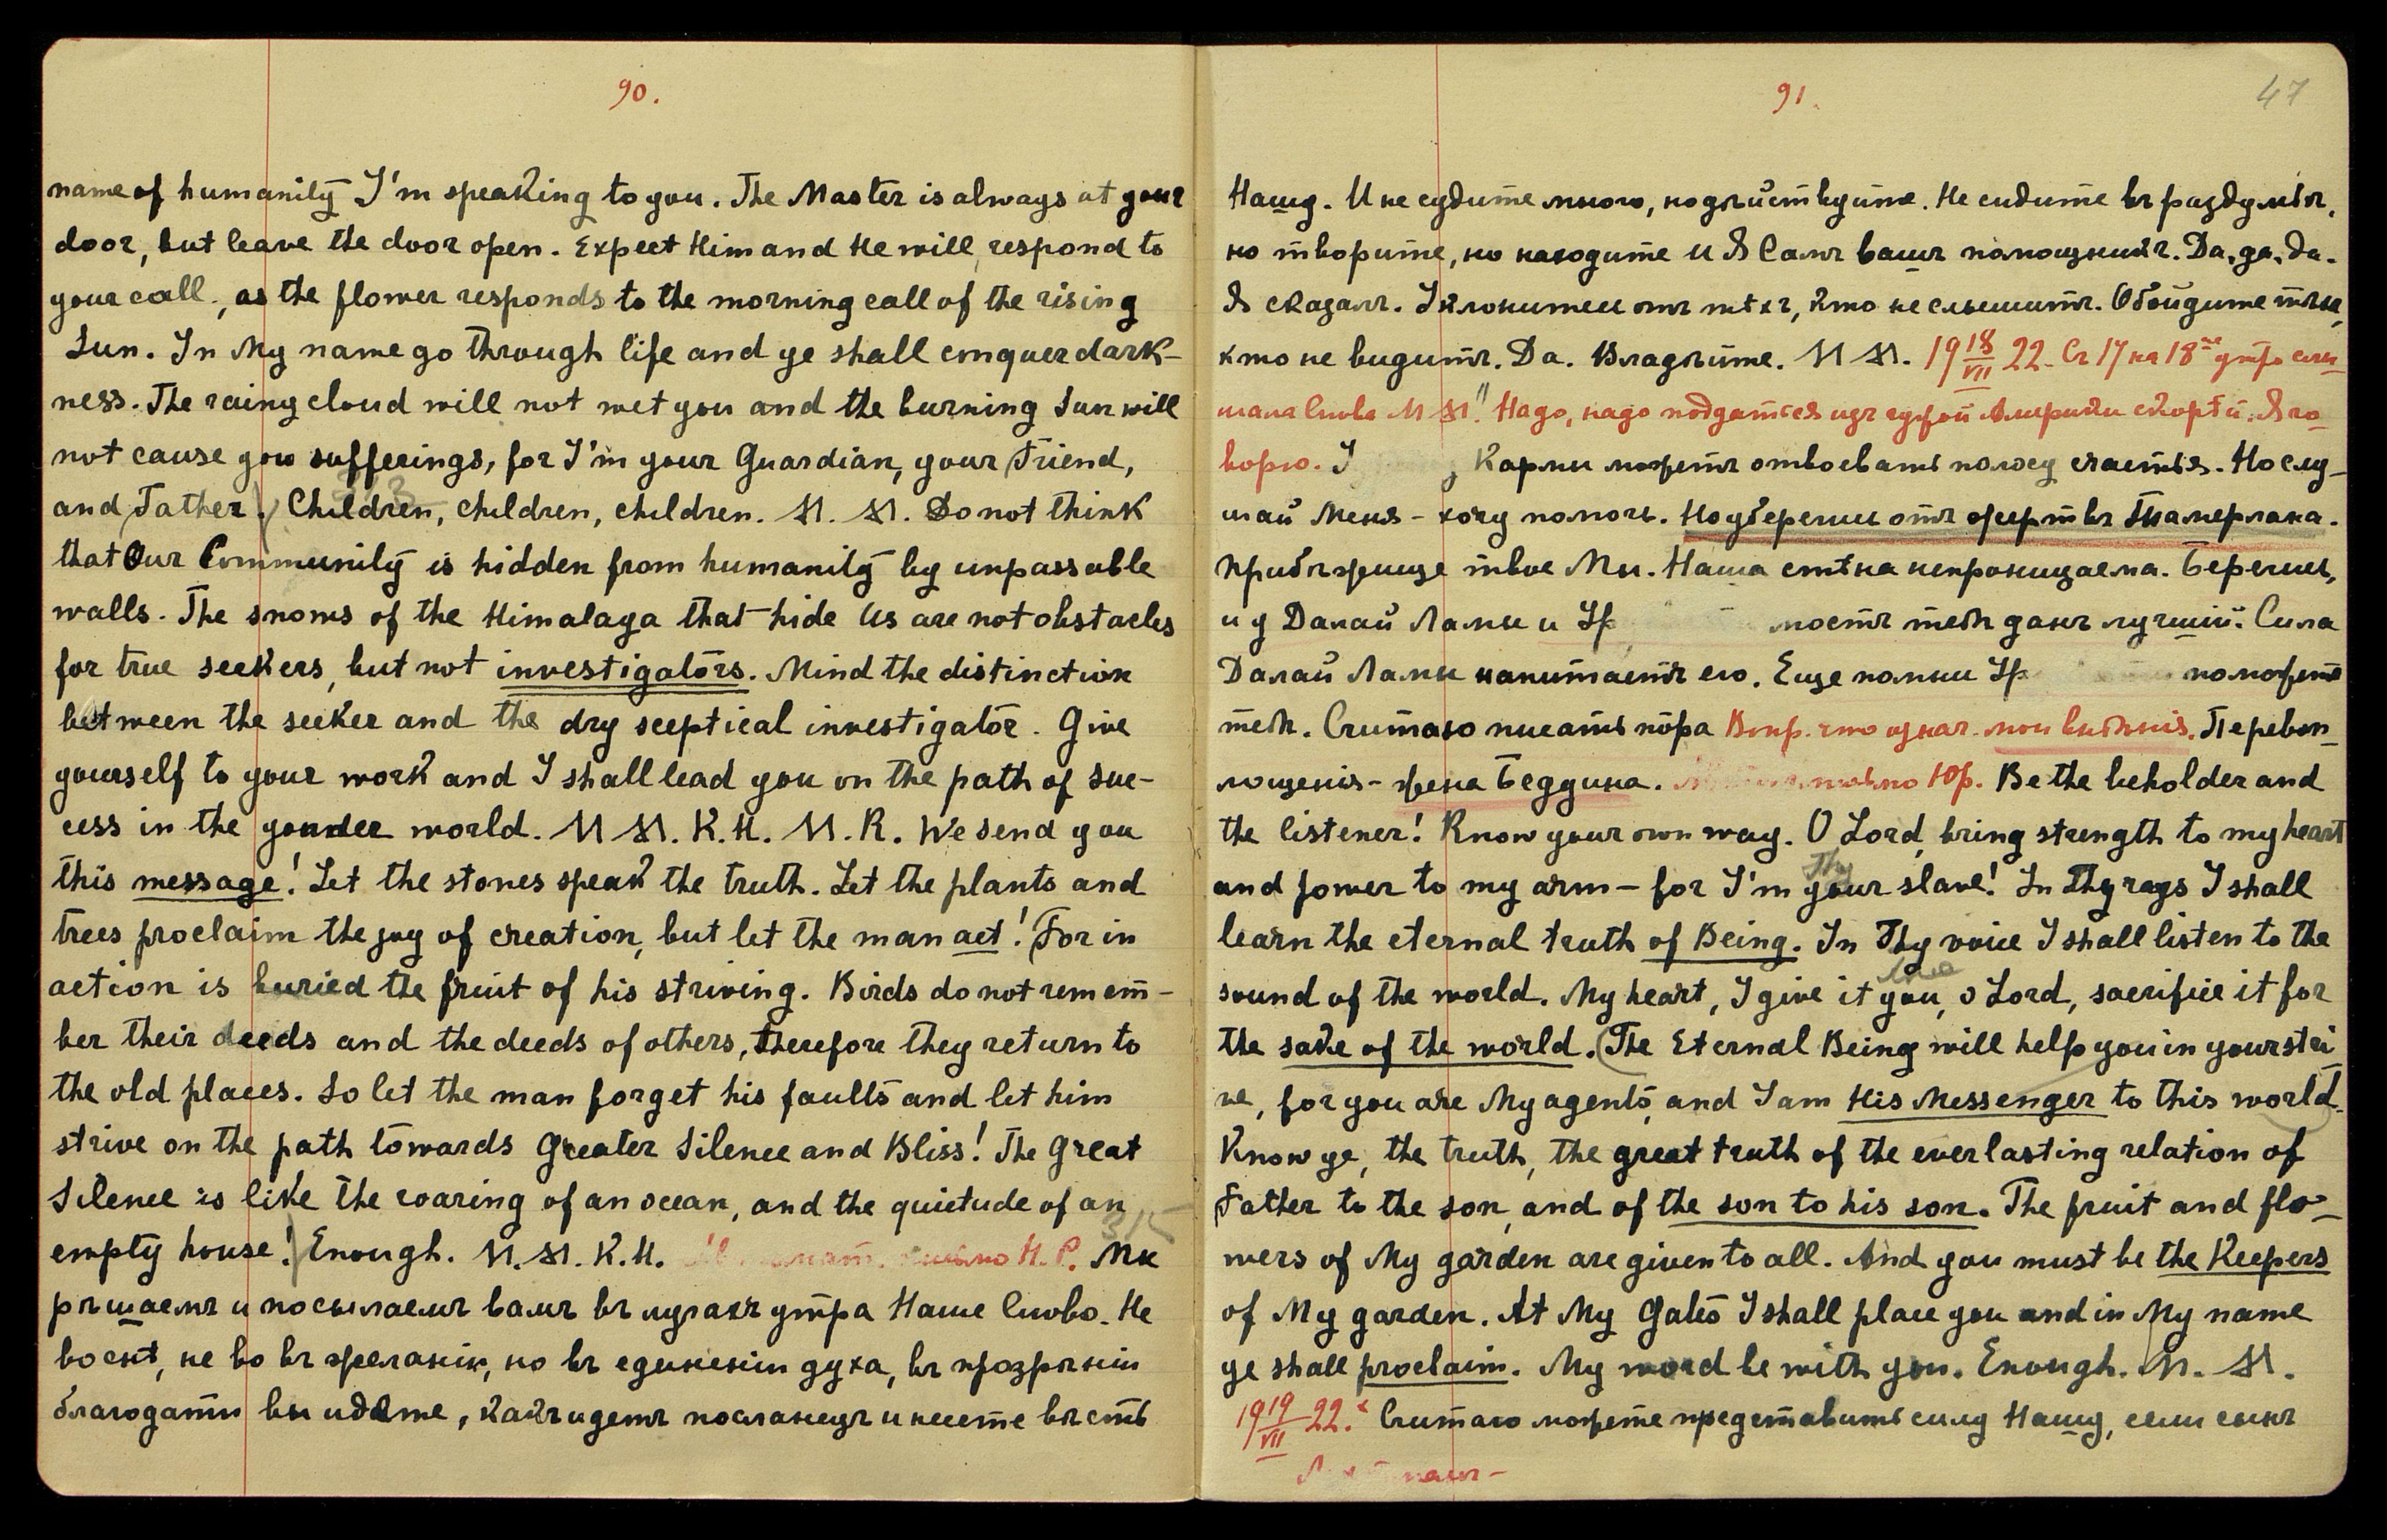 90.
name of humanity I'm speaking to you. The Master is always at your
door, but leave the door open. Expect Him and He will respond to
your call, as the flower responds to the morning call of the rising
Sun. In My name go through life and ye shall cmquer dark-
ness. The rainy cloud will not wet you and the burning Sun will
not cause you sufferings, for I'm your Guardian, your Friend,
and Father. Children, children, children. M. M. Do not think
that Our Community is hidden from humanity by unpassable
walls. The snows of the Himalaya that hide Us are not obstacles
for true seekers, but not investigators. Mind the distinction
between the seeker and the dry sceptical investigator. Give
yourself to your work and I shall lead you on the path of suc-
cess in the yonder world. M M. K. H. M. R. We send you
this message! Let the stones speak the truth. Let the plants and
trees proclaim the joy of creation, but let the man act! For in
action is buried the fruit of his striving. Birds do not remem-
ber their deeds and the deeds of others, therefore they return to
the old places. So let the man forget his faults and let him
strive on the path towards Greater Silence and Bliss! The Great
Silence is like the roaring of an ocean, and the quietude of an
empty house! Enough. M. M. K. H. Н. Р. Мы
рѣшаемъ и посылаемъ вамъ въ лучахъ утра Наше Слово. Не
во снѣ, не во въ желаніи, но въ единеніи духа, въ прозрѣніи
благодати вы идете, какъ идетъ посланецъ и несете вѣсть
91.
47
Нашу. И не судите много, но дѣйствуйте. Не сидите въ раздумьѣ,
но творите, но находите и Я Самъ вашъ помощникъ. Да, да, да.
Я сказалъ. Уклонитесь отъ тѣхъ, кто не слышитъ. Обойдите тѣхъ,
кто не видитъ. Да. Владѣйте. M M. 19 18/VII 22. Съ 17 на 18ое утро слы-
шала Слова M M. "Надо, надо податься изъ сухой Америки скорѣй. Я го-
ворю. У , Кармы можетъ отвоевать полосу счастья. Послу-
шай Меня - хочу помочь. Но убереги отъ жертвъ Тамерлана.
Прибѣжище твое Мы. Наша стѣна непроницаема. Берегись,
и у Далай Ламы и Ур мостъ тебѣ данъ лучшій. Сила
Далай Ламы напитаетъ его. Еще помни Ур поможетъ
тебѣ. Считаю писать пора Вопр. что означ. мои видѣнія. Перевоп-
лощенія - жена Беддина. Юр. Be the beholder and
the listener! Know your own way. O Lord, bring strength to my heart
and power to my arm - for I'm your Thy slave! In Thy rays I shall
learn the eternal truth of Being. In Thy voice I shall listen to the
sound of the world. My heart, I give it you, o Lord, sacrifice it for
the sake of the world. The Eternal Being will help you in your stri
ve, for you are My agents, and I am His Messenger to this world.
Know ye, the truth, the great truth of the everlasting relation of
Father to the son, and of the son to his son. The fruit and flo-
wers of My garden are given to all. And you must be the Keepers
of My garden. At My Gates I shall place you and in My name
ye shall proclaim. My word be with you. Enough. M. M.
19 19/VII 22. Считаю можете представить силу Нашу, если сынъ